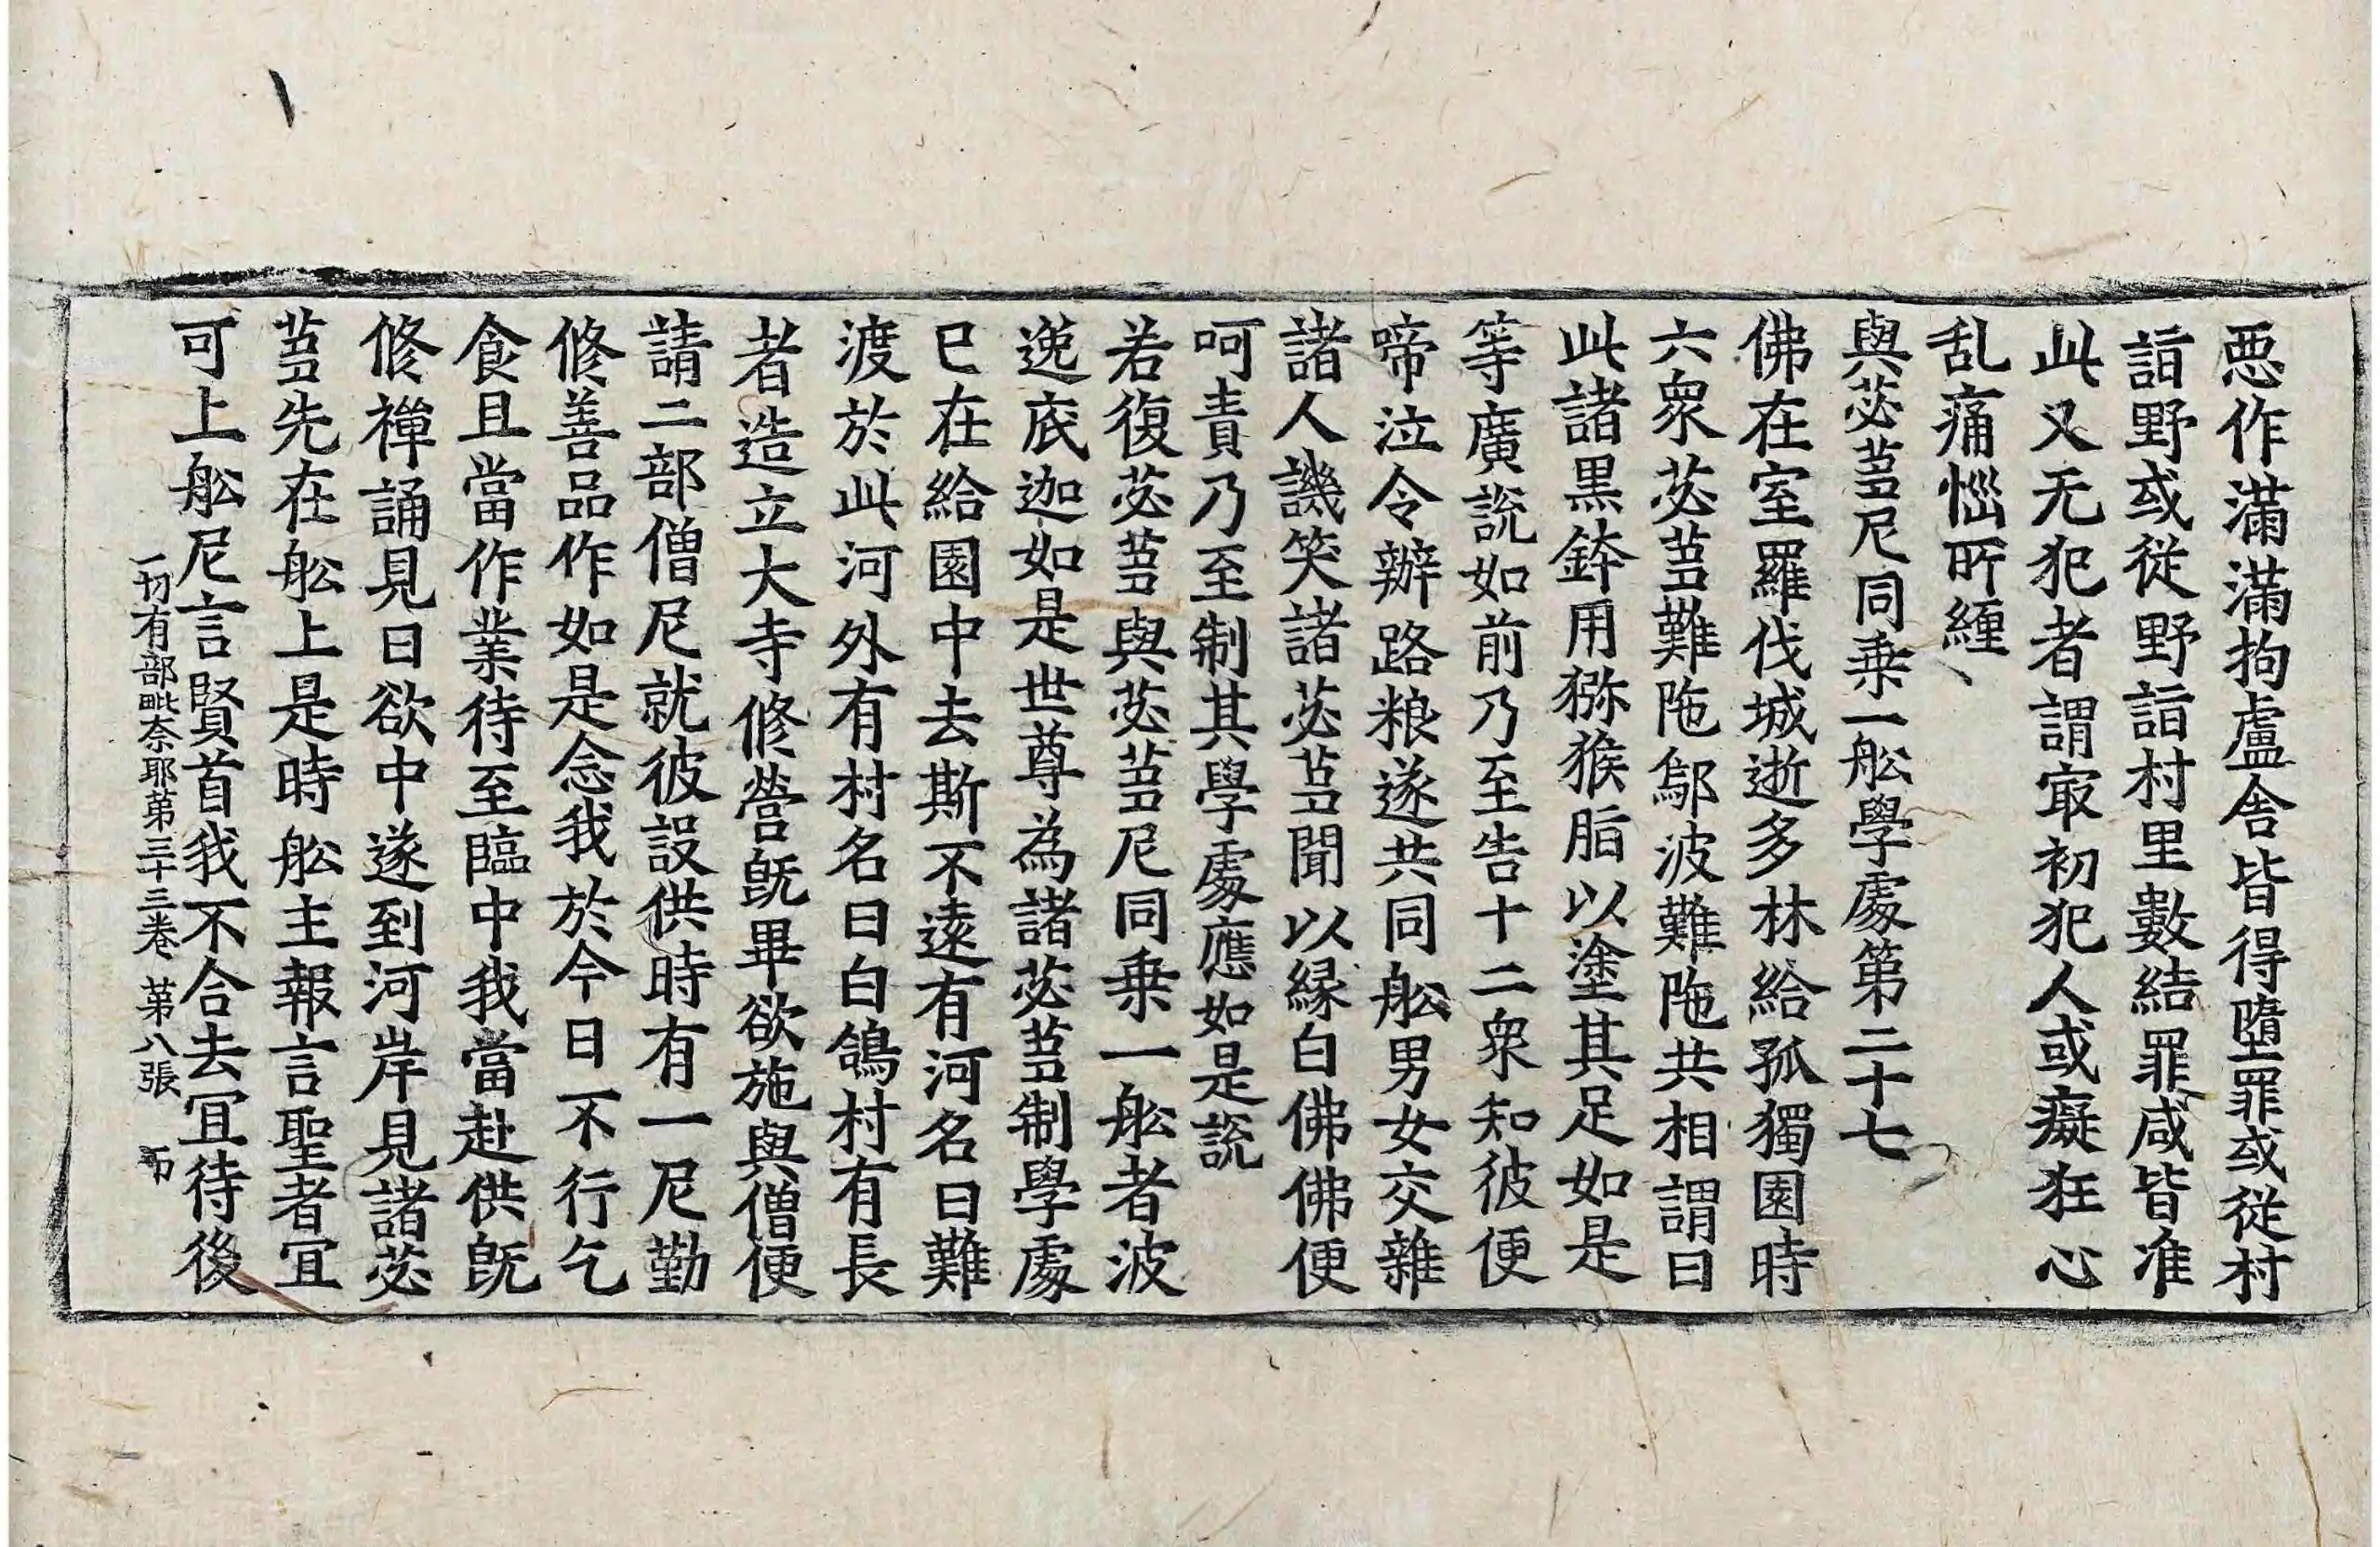 惡作滿滿拘盧舎皆得墮罪或從村
詣野或從野詣村里數結罪咸皆准
此又无犯者謂㝡初犯人或癡狂心
乱痛惱所纏
與苾芻尼同乗一舩學處第二十七
佛在室羅伐城逝多林給孤獨園時
六衆苾芻難陁鄔波難陁共相謂曰
此諸黒鉢用猕猴脂以塗其足如是
等廣說如前乃至告十二衆知彼便
啼泣令辦路粮遂共同舩男女交雜
諸人譏笑諸苾芻聞以縁白佛佛便
呵責乃至制其學處應如是說
若復苾芻與苾芻尼同乗一舩者波
逸底迦如是世尊為諸苾芻制學處
已在給園中去斯不遠有河名曰難
渡於此河外有村名曰白鴿村有長
者造立大寺修營旣畢欲施與僧便
請二部僧尼就彼設供時有一尼勤
修善品作如是念我於今日不行乞
食且當作業待至臨中我當赴供旣
修禪誦見日欲中遂到河岸見諸苾
芻先在舩上是時舩主報言聖者冝
可上舩尼言賢首我不合去冝待後
一切有部毗奈耶第三十三卷 第八張